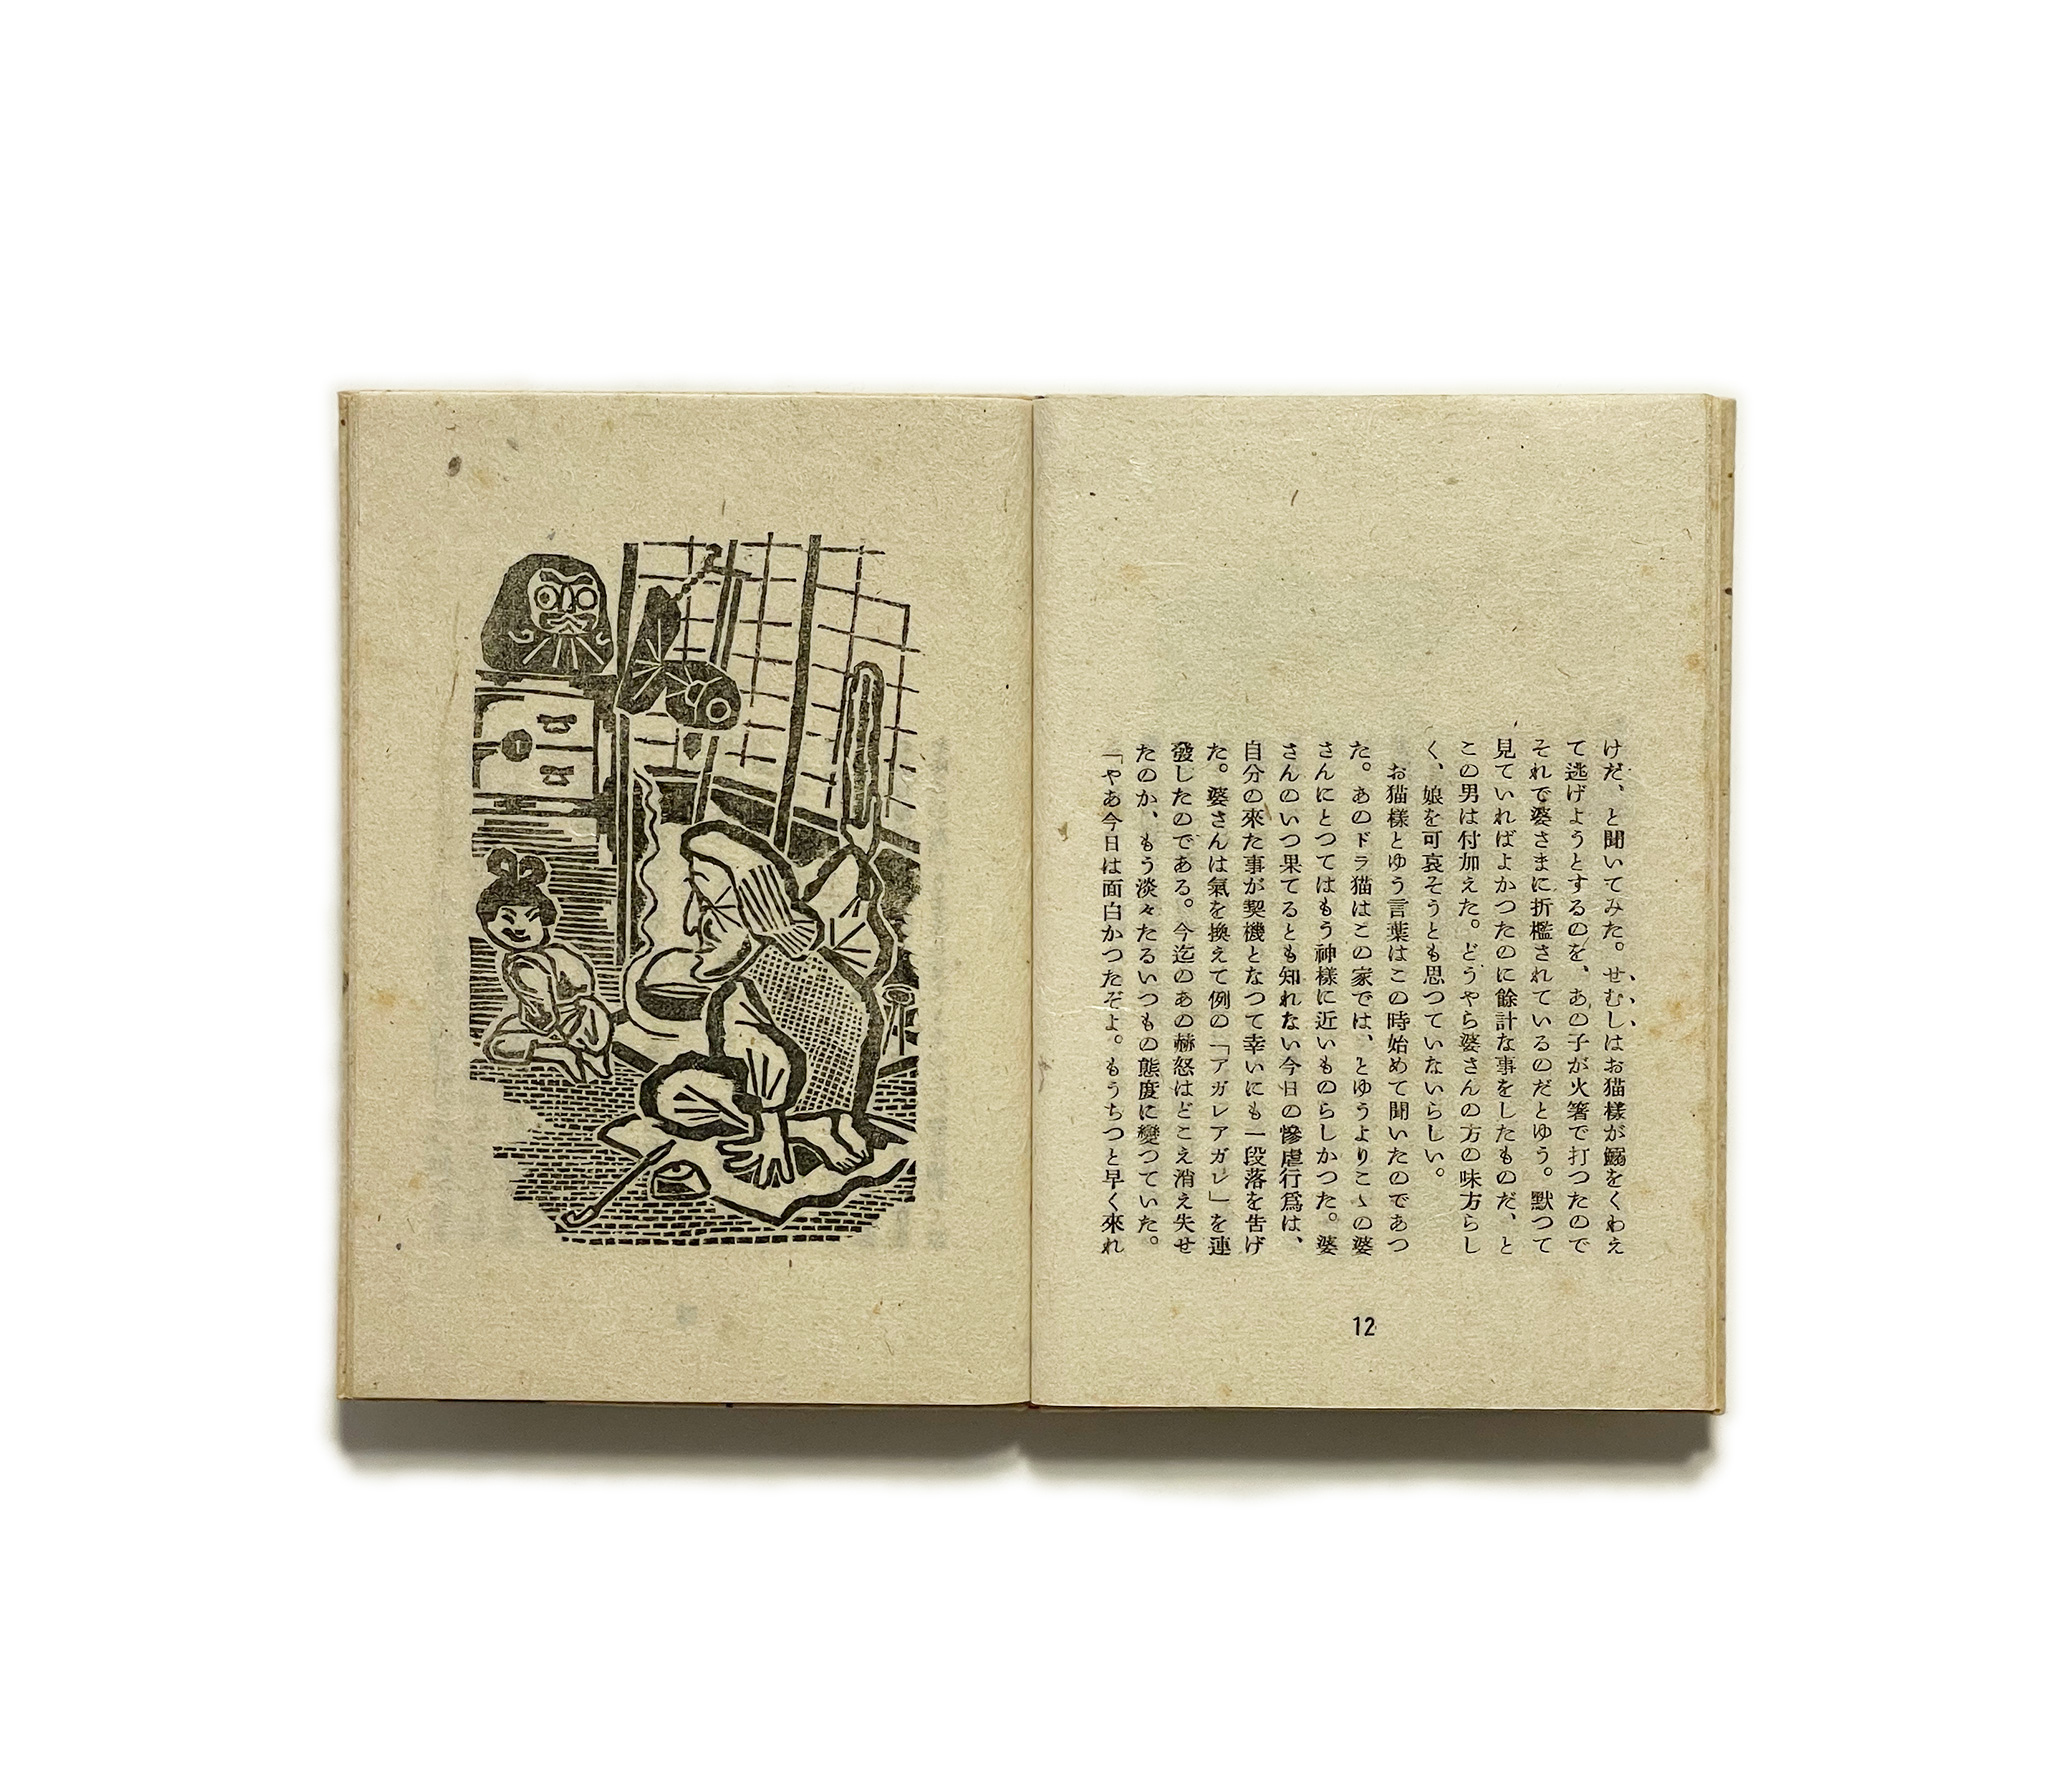 けだ、と聞いてみた。せむしはお猫樣が鰯をくわえ
て逃げようとするのを、あの子が火箸で打つたので
それで婆さまに折檻されているのだとゆう。默つて
見ていればよかつたのに餘計な事をしたものだ、と
この男は付加えた。どうやら婆さんの方の味方らし
く、娘を可哀そうとも思つていないらしい。
お猫樣とゆう言葉はこの時始めて聞いたのであつ
た。あのドラ猫はこの家では、とゆうよりこゝの婆
さんにとつてはもう神樣に近いものらしかつた。婆
さんのいつ果てるとも知れない今日の慘虐行爲は、
自分の來た事が契機となつて幸いにも一段落を告げ
た。婆さんは氣を換えて例の「アガレアガレ」を連
發したのである。今迄のあの赫怒はどこえ消え失せ
たのか、もう淡々たるいつもの態度に變つていた。
「やあ今日は面白かつたぞよ。もうちつと早く來れ
12